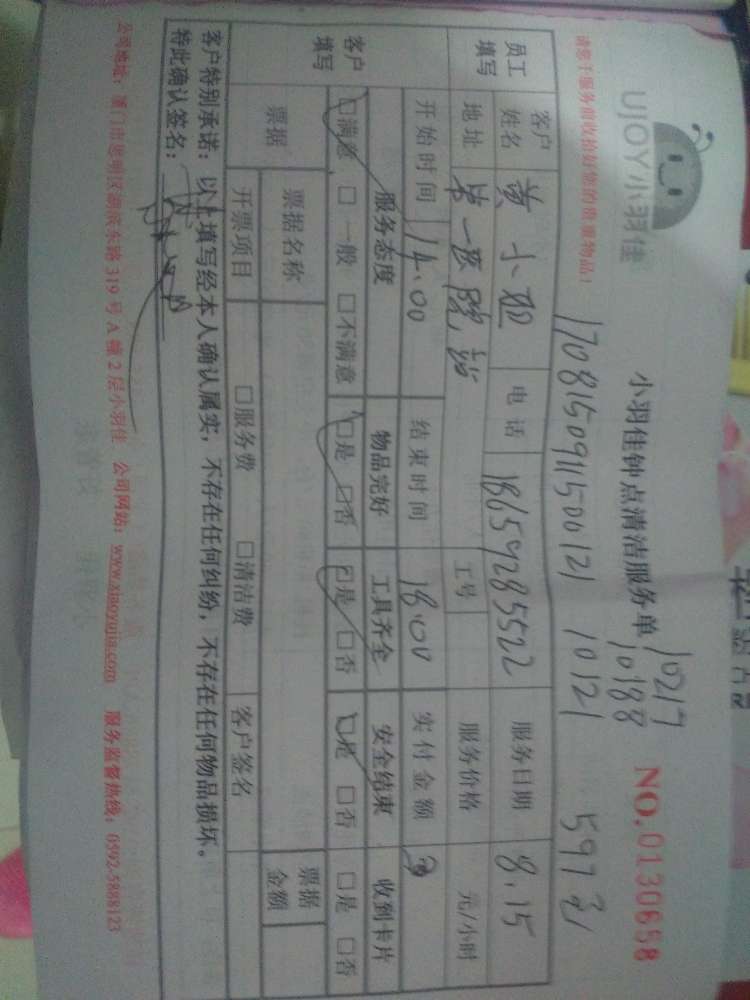 UJOY小羽佳
小羽佳钟点清洁服务单
10217
10188
NO.0130658
请您于服务前收拾好您的贵重物品！
1708150911500121 10121 597
员工填写 客户姓名 黄小 电话 18659285522 服务日期 8.15
地址 第一医院 工号 服务价格 元/小时
开始时间 14:00 结束时间 18:00 实付金额
客户填写 服务态度 物品完好 工具齐全 安全结束 收到卡片
□满意 □一般 □不满意 □是 □否 □是 □否 □是 □否 □是 □否
票据 票据名称 票据金额
开票项目 □服务费 □清洁费 客户签名
客户特别承诺：以上填写经本人确认属实，不存在任何纠纷，不存在任何物品损坏。
特此确认签名：
公司地址：厦门市思明区湖滨东路319号A幢2层小羽佳 公司网站：www.xiaoyujia.com 服务监督热线：0592-5888123